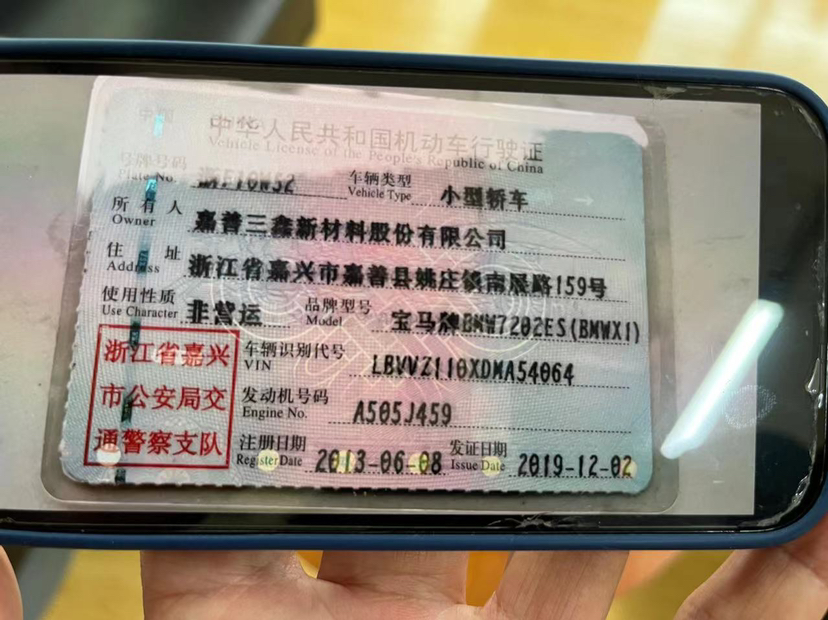 中华人民共和国机动车行驶证
Vehicle License of the People's Republic of China
号牌号码 浙F10W52 车辆类型 小型轿车
Plate No. Vehicle Type
所有人 嘉善三鑫新材料股份有限公司
Owner
住址 浙江省嘉兴市嘉善县姚庄镇南展路159号
Address
使用性质 非营运 品牌型号 宝马牌BMW7202ES(BMWX1)
Use Character Model
浙江省嘉兴
市公安局交
通警察支队
车辆识别代号 LBVVZ110XDMA54064
VIN
发动机号码 A505J459
Engine No.
注册日期 2013-06-08 发证日期 2019-12-02
Register Date Issue Date